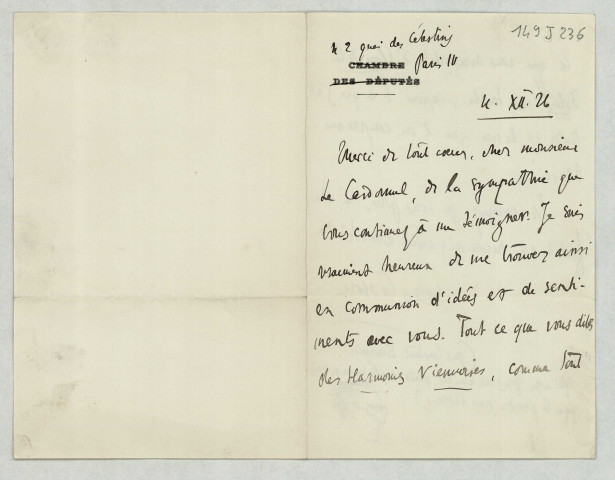 149 J 236
4 2 quai des Célestins
Paris IV
CHAMBRE
DES DÉPUTÉS
4. XII. 26
Merci de tout coeur, cher monsieur
Le Cardonnel, de la sympathie que
vous continuez à me témoigner. Je suis
vraiment heureux de me trouver ainsi
en communion d'idées et de senti-
ments avec vous. Tout ce que vous dites
des Harmonies Viennoises, comme tout